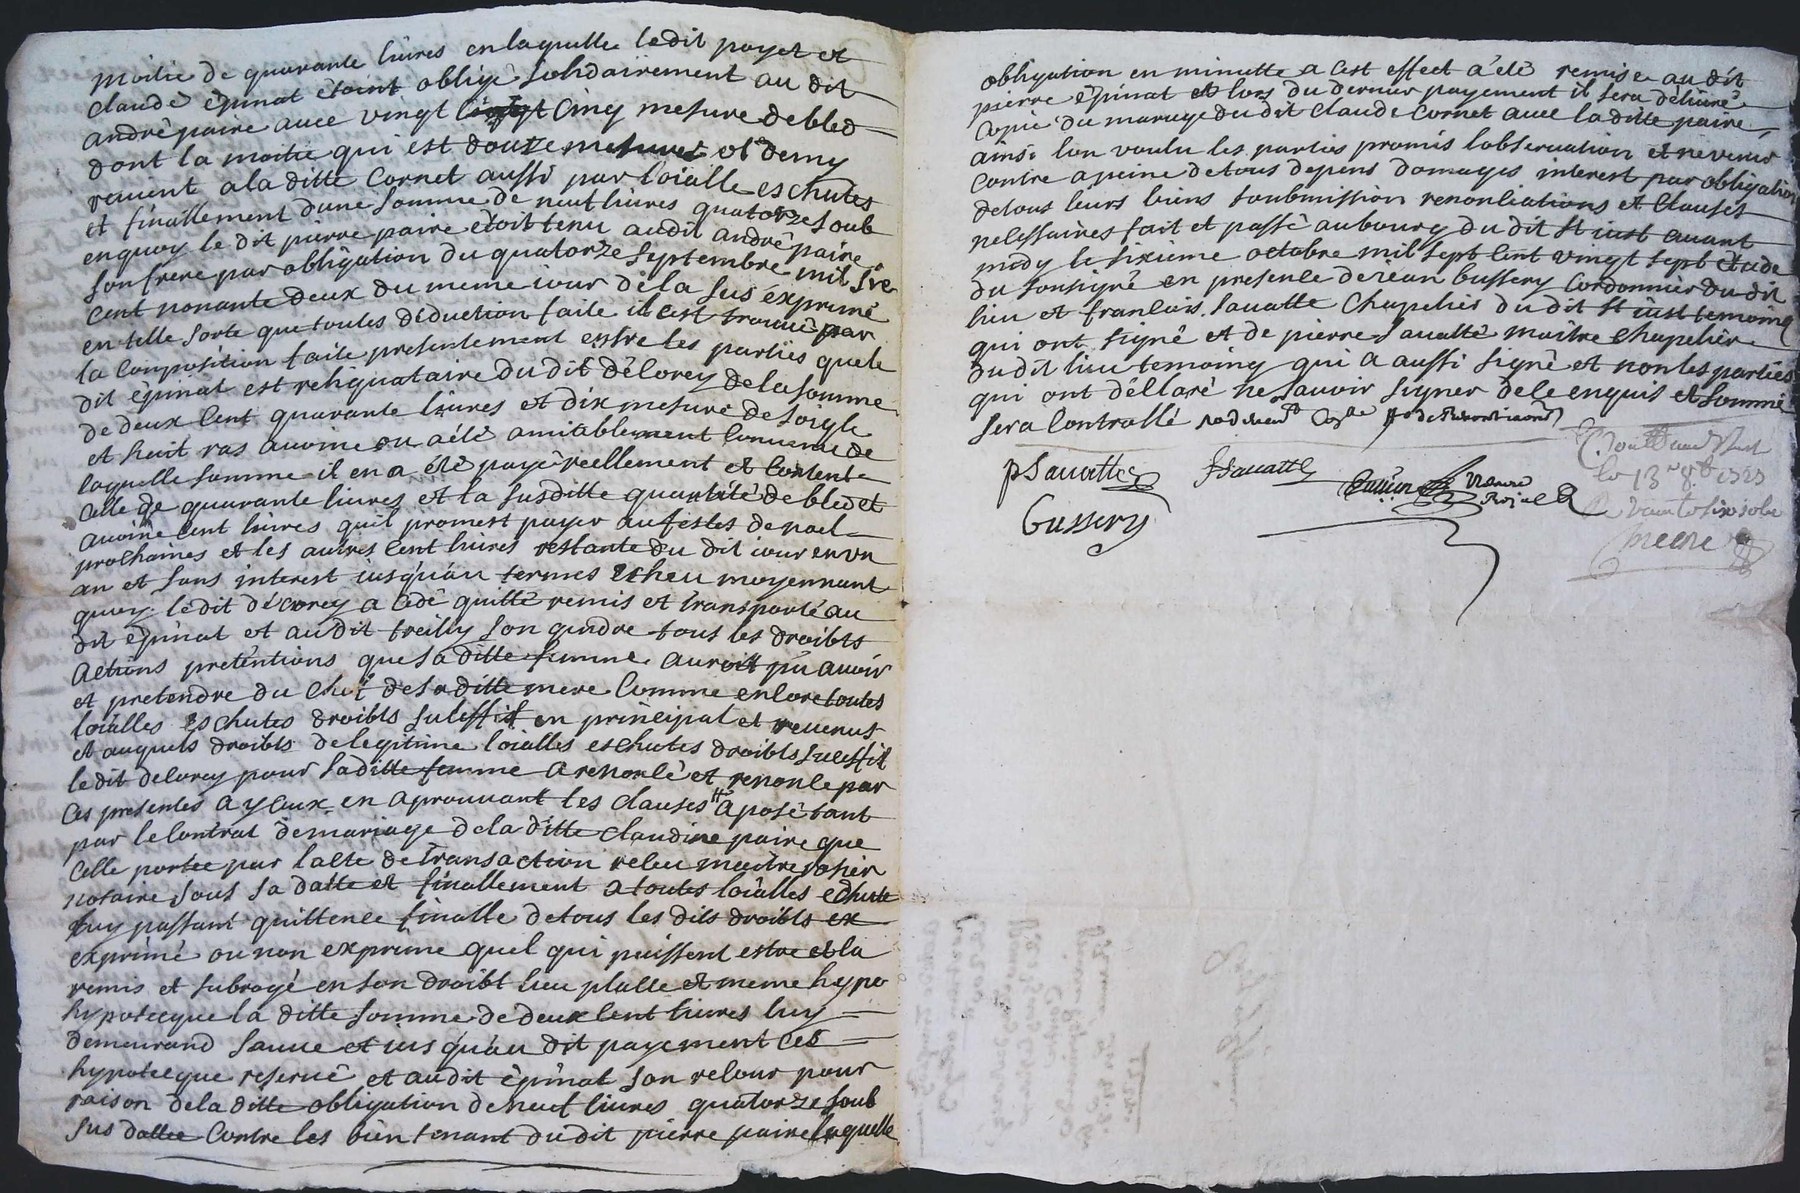 moitie de quarante livres en laquelle ledit payet et
claude épinat étoint obligé solidairement au dit
andré paire avec vingt cinq mesure de bled
dont la moitie qui est douze mesures et demy
revient a la ditte Cornet aussi par loialle eschutes
et finallement dune somme de neuf livres quatorze soub
en quoy le dit pierre paire étoit tenu audit andré paire
son frere par obligation du quatorze septembre mil six
cent nonante deux du meme iour déla sus exprimé
en telle sorte que toutes déduction faite il cest trouvé par
la Composition faite presentement entre les parties que le
dit épinat est reliquataire du dit délorey de la somme
de deux cent quarante livres et dix mesure de soigle
et huit ras avoine ou a été amitablement Convenu de
laquelle somme il en a été payé réellement et Content
celle de quarante livres et la susditte quantité de bled et
avoine cent livres quil promest payer au festes de noel
prochaines et les autres cent livres restante du dit iour en un
an et sans interest iusqu'au termes escheu moyennant
quoy ledit délorey a cédé quitté remis et transporté au
dit épinat et au dit treilly son gindre tous les droibts
actions pretentions que sa ditte femme auroit pu avoir
et pretendre du chef de sa ditte mere Comme encore toutes
loialles eschutes droibts sucessif en principal et revenus
et auquels droibts de legitime loialles eschutes droibts sucessif
ledit delorey pour sa ditte femme a renoncé et renonce par
ces presentes a yceux en aprouvant les clauses aposé tant
par le Contrat de mariage de la ditte claudine paire que
celle portee par lacte de transaction receu maitre
notaire sous sa datte et finallement a toutes loialles echute
luy passant quittence finalle de tous les dits droibts ex
exprimé ou non exprimé quel qui puissent estre et la
remis et subrogé en son droibt lieu plasse et meme hypo
hypoteeque la ditte somme de deux cent livres luy
demeurand sauve et iusqu'au dit payement ces
hypoteeque reservé et audit épinat son retour pour
raison de la ditte obligation de neuf livres quatorze soub
sus dattee Contre les bien tenant du dit pierre paire laquelle
obligation en minutte a cest effect a été remise au dit
pierre épinat et lors du dernier payement il sera délivré
copie du mariage du dit claude Cornet avec la ditte paire
ainsi lon voulu les parties promis lobservation et ne venir
contre a peine de tous depens domages interest par obligation
de tous leurs biens soubmission renonciations et clauses
nécessaires fait et passé au bourg du dit st iust avant
midy le sixième octobre mil sept cent vingt sept
du soussigné en presence de iean bussery Cordonnier du dit
lieu et francois sauatte chapelier du dit st iust temoing
qui ont signé et de pierre sauatte maitre chapelier
du dit lieu temoing qui a aussi signé et non les parties
qui ont déclaré ne scavoir signer de ce enquis et sommé
sera Controllé
p Sauatte f Sauatte
Bussery
Royal
le 13